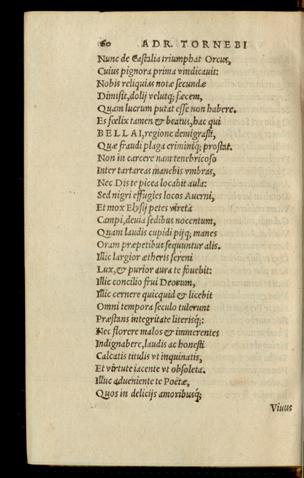 60 ADR. TORNEBI
Nunc de Castalia triumphat Orcus,
Cuius pignora prima vindicauit:
Nobis reliquias notæ secundæ
Dimisit, dolij velutq; fæcem,
Quam lucrum putat esse non habere.
Es fœlix tamen & beatus, hac qui
BELLAI, regione demigrasti,
Quæ fraudi plaga criminiq; prostat.
Non in carcere nam tenebricoso
Inter tartareas manebis vmbras,
Nec Dis te picea locabit aula:
Sed nigri effugies locos Auerni,
Et mox Elysij petes vireta
Campi, deuia sedibus nocentum,
Quam laudis cupidi pijq; manes
Oram præpetibus sequuntur alis.
Illic largior ætheris sereni
Lux, & purior aura te fouebit:
Illic concilio frui Deorum,
Illic cernere quicquid & licebit
Omni tempora seculo tulerunt
Præstans integritate literisq;:
Nec florere malos & immerentes
Indignabere, laudis ac honesti
Calcatis titulis vt inquinatis,
Et virtute iacente vt obsoleta.
Illuc adueniente te Poetæ,
Quos in delicijs amoribusq;
Viuus